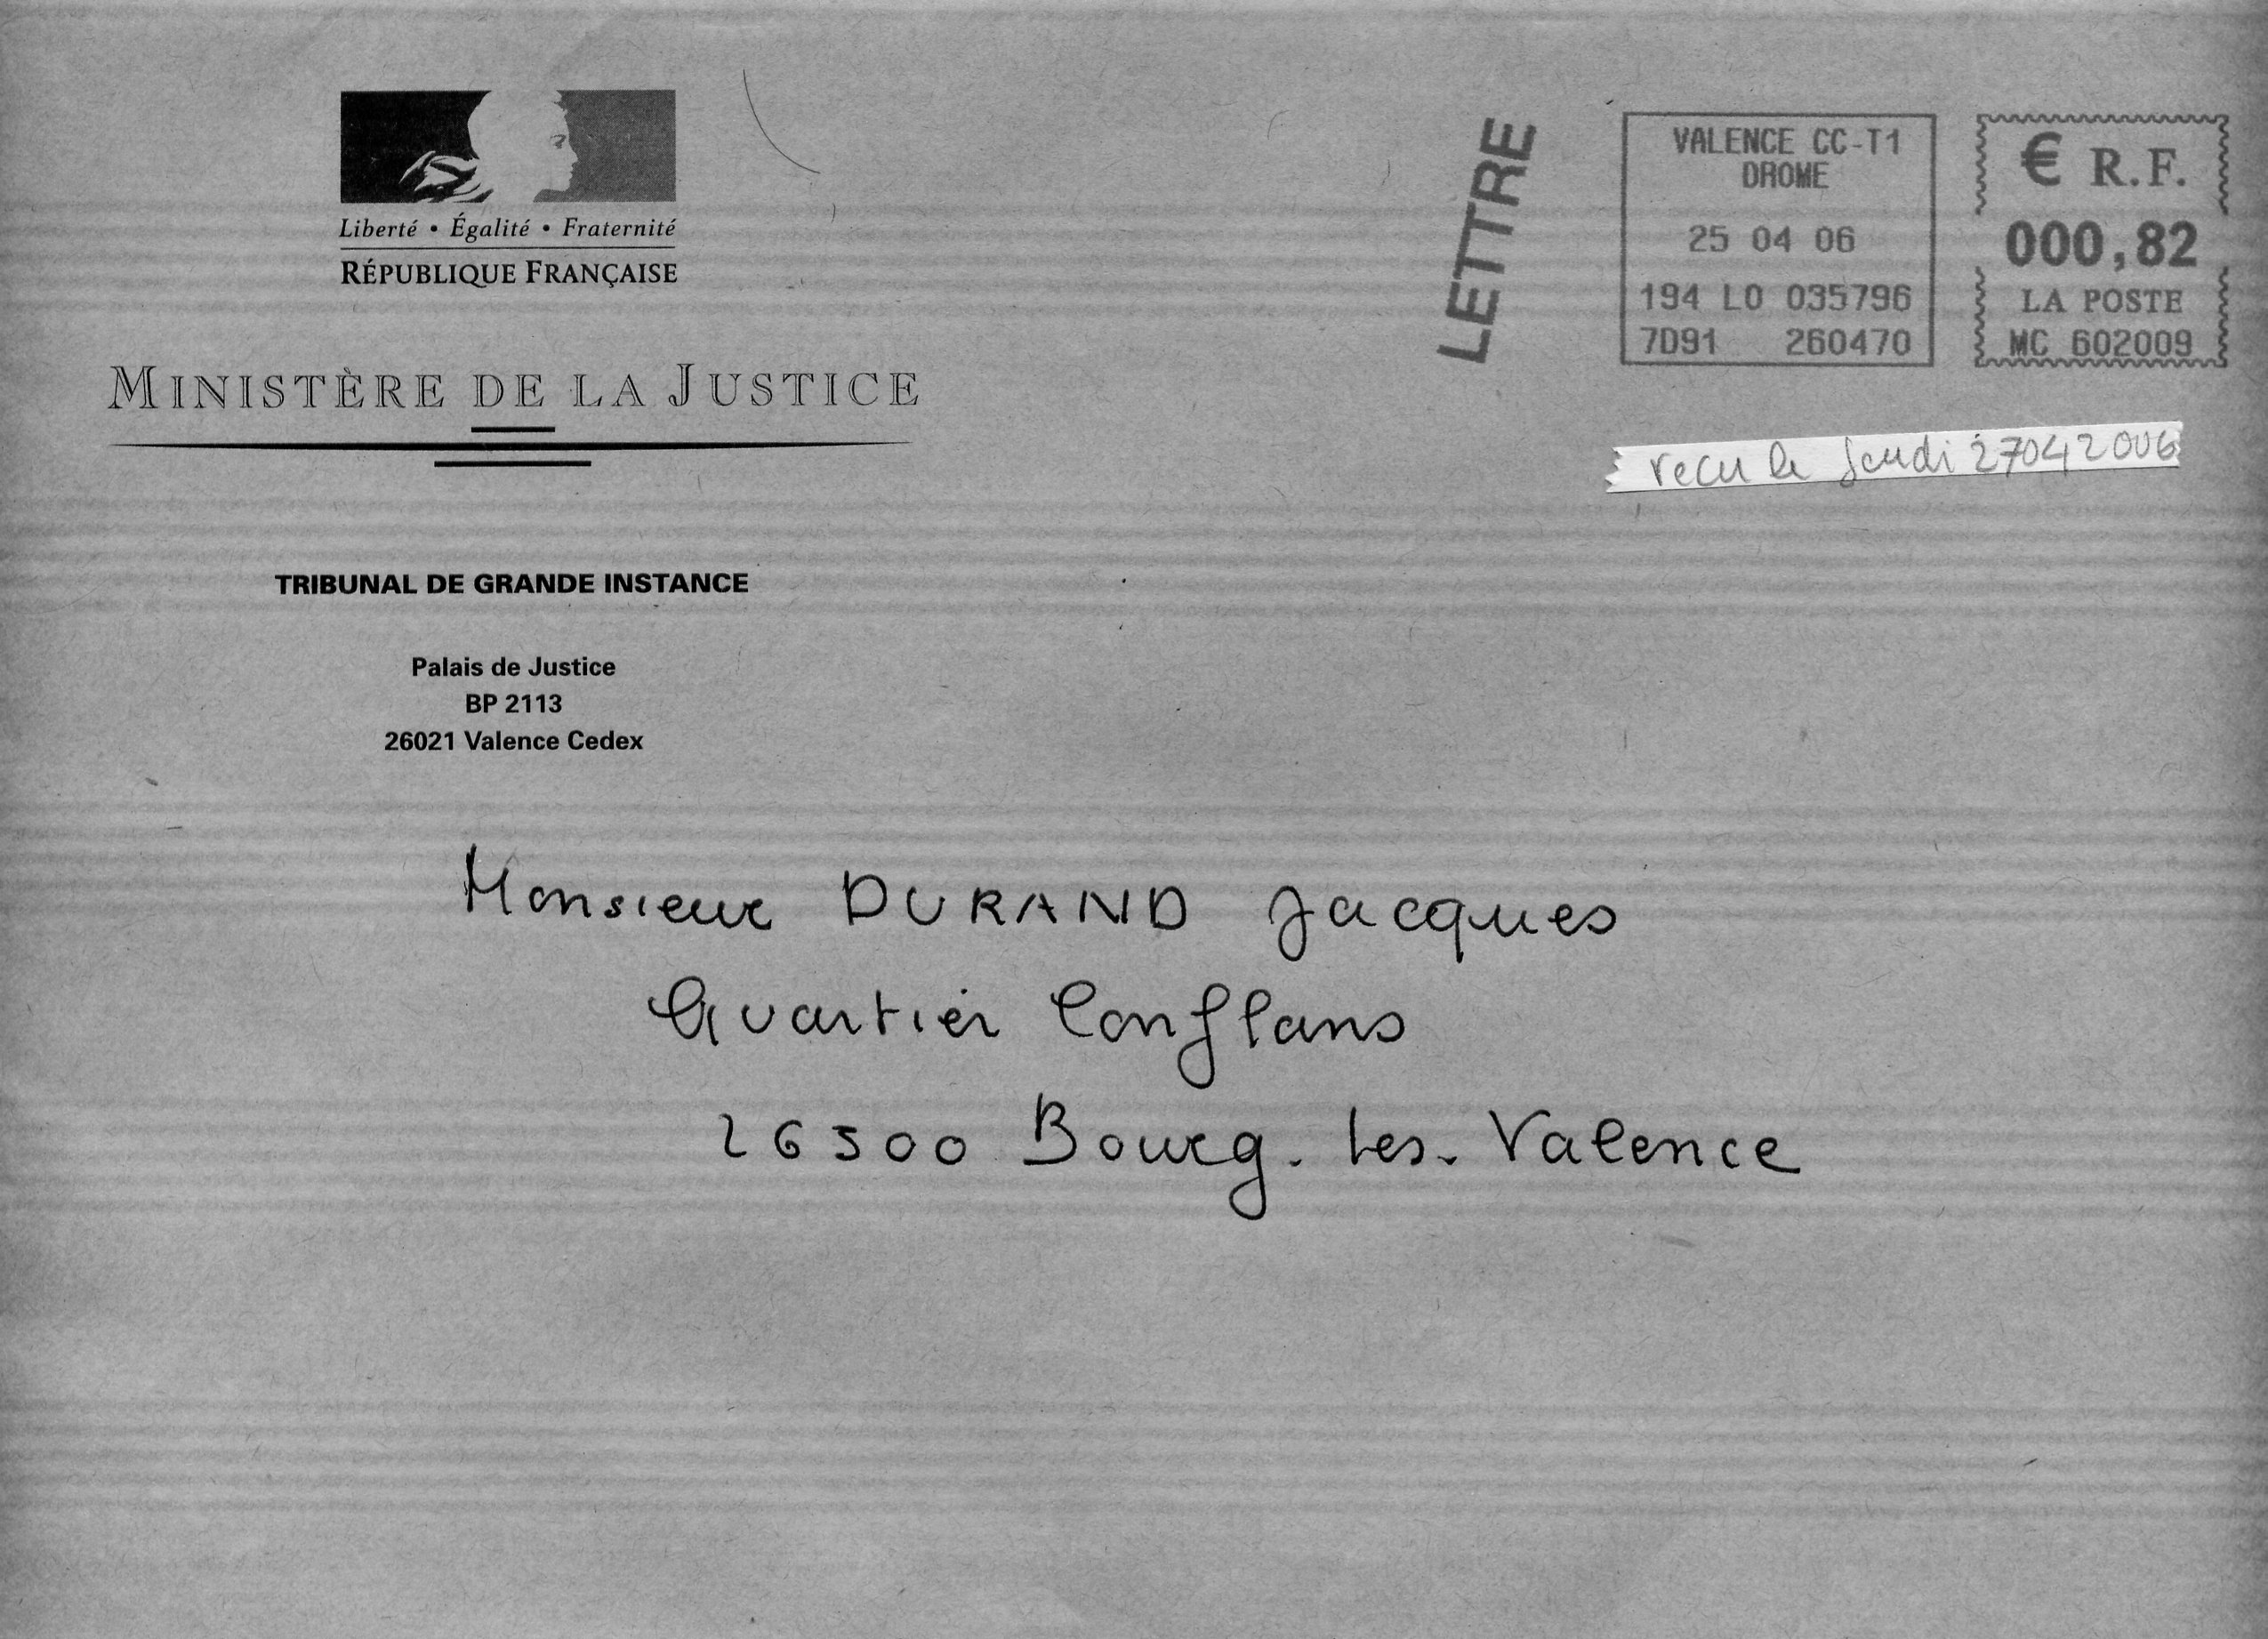 Liberté • Égalité • Fraternité
RÉPUBLIQUE FRANÇAISE
MINISTÈRE DE LA JUSTICE
TRIBUNAL DE GRANDE INSTANCE
Palais de Justice
BP 2113
26021 Valence Cedex
LETTRE
VALENCE CC-T1
DROME
25 04 06
194 LO 035796
7D91 260470
€ R.F.
000,82
LA POSTE
MC 602009
recu le Jeudi 27042006
Monsieur DURAND Jacques
Quartier Conflans
26500 Bourg-les-Valence